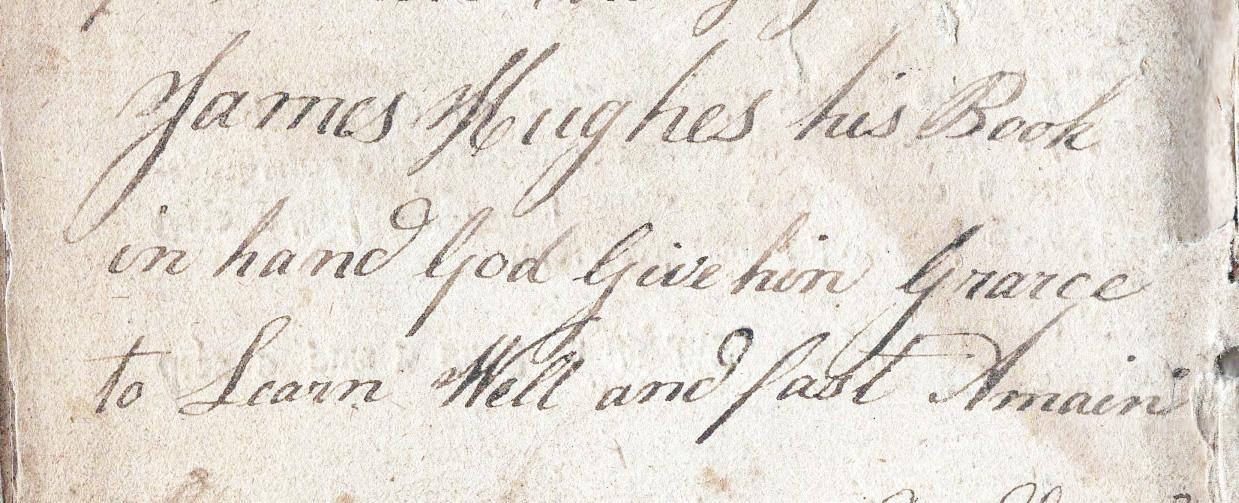 James Hughes his Book
in hand God Give him Grarce
to Learn Well and fast Amain